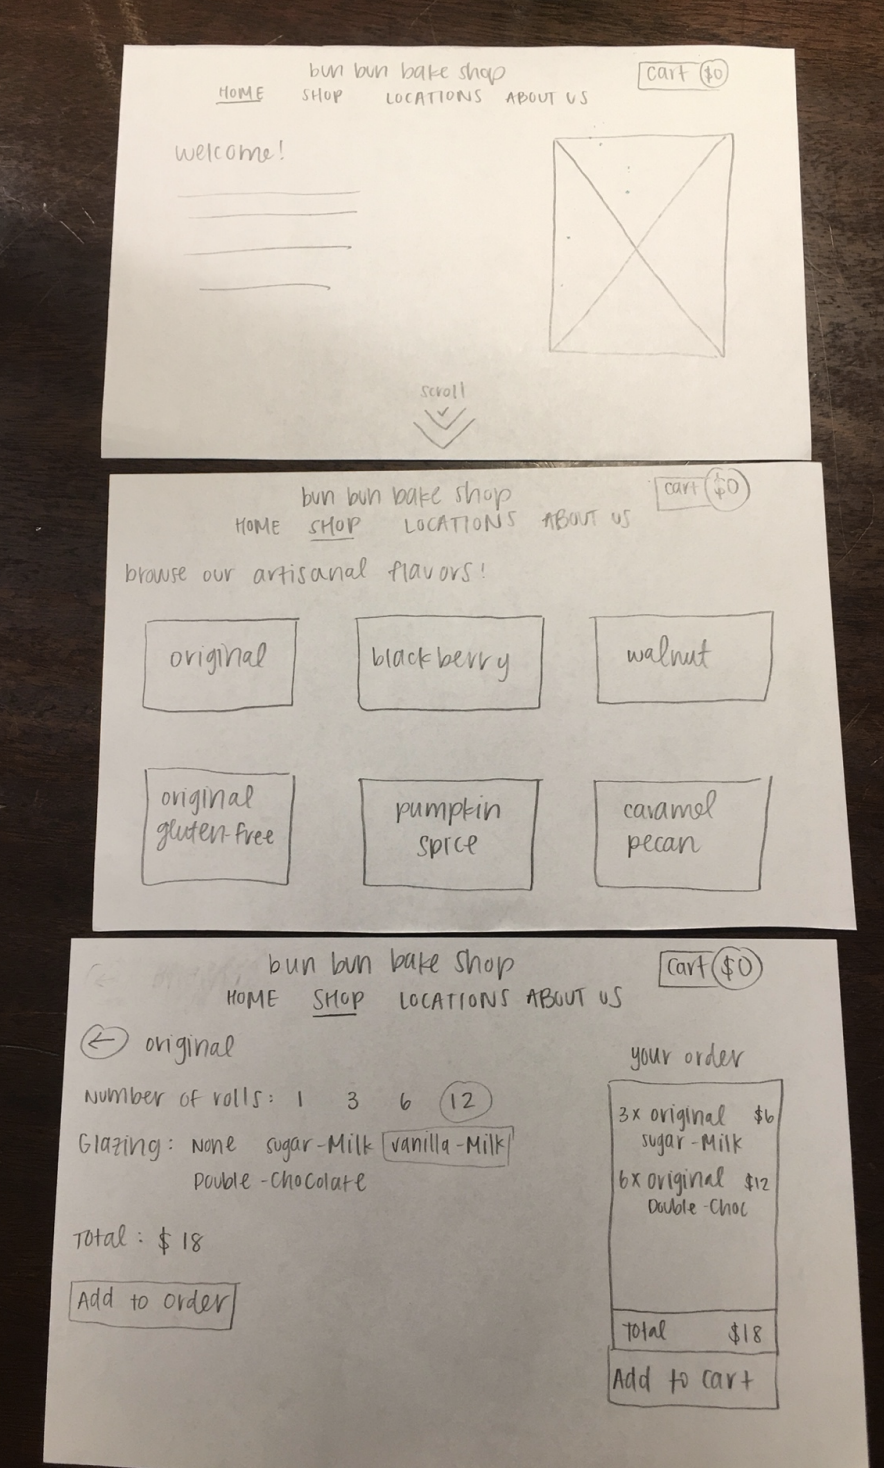 bun bun bake shop
cart $0
HOME SHOP LOCATIONS ABOUT US
welcome!
scroll
bun bun bake shop
cart $0
HOME SHOP LOCATIONS ABOUT US
browse our artisanal flavors!
original
blackberry
walnut
original
gluten-free
pumpkin
spice
caramel
pecan
bun bun bake shop
cart $0
HOME SHOP LOCATIONS ABOUT US
← original
Number of rolls: 1 3 6 12
Glazing: None sugar-Milk vanilla-Milk
Double-Chocolate
Total: $18
Add to order
your order
3x original $6
sugar-Milk
6x original $12
Double-Choc
Total $18
Add to cart